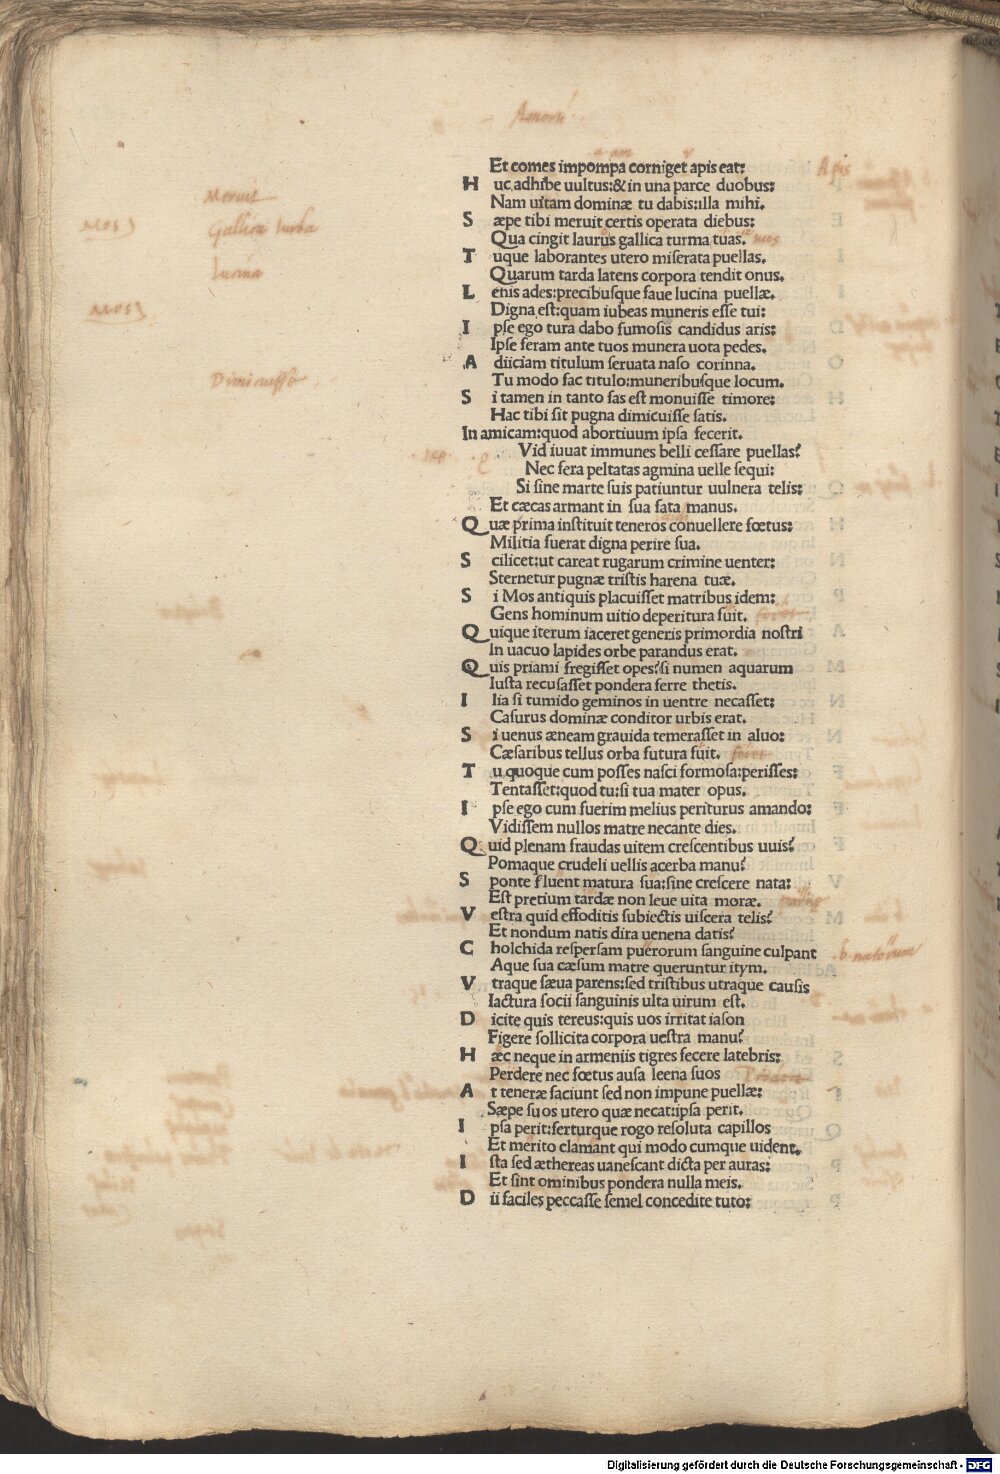 Amorū
Et comes impompa corniget apis eat:
Apis
H uc adhibe uultus:&in una parce duobus:
Meruit
Nam uitam dominæ tu dabis:illa mihi.
S æpe tibi meruit certis operata diebus:
MOS
Gallica turba
Qua cingit laurus gallica turma tuas.
mos
T uque laborantes utero miserata puellas.
Lucina
Quarum tarda latens corpora tendit onus.
L enis ades:precibusque faue lucina puellæ.
MOS
Digna est:quam iubeas muneris esse tui:
I pse ego tura dabo fumosis candidus aris:
Ipse feram ante tuos munera uota pedes.
A diiciam titulum seruata naso corinna.
Dimicuisse
Tu modo fac titulo:muneribusque locum.
S i tamen in tanto fas est monuisse timore:
Hac tibi sit pugna dimicuisse satis.
In amicam:quod abortiuum ipsa fecerit.
Vid iuuat immunes belli cessare puellas?
Nec fera peltatas agmina uelle sequi:
Si sine marte suis patiuntur uulnera telis:
Et cæcas armant in sua fata manus.
Q uæ prima instituit teneros conuellere fœtus:
Militia fuerat digna perire sua.
S cilicet:ut careat rugarum crimine uenter:
Sternetur pugnæ tristis harena tuæ.
S i Mos antiquis placuisset matribus idem:
Gens hominum uitio deperitura fuit.
Q uique iterum iaceret generis primordia nostri
In uacuo lapides orbe parandus erat.
Q uis priami fregisset opes?si numen aquarum
Iusta recusasset pondera ferre thetis.
I lia si tumido geminos in uentre necasset:
Casurus dominæ conditor urbis erat.
S i uenus æneam grauida temerasset in aluo:
Cæsaribus tellus orba futura fuit.
T u quoque cum posses nasci formosa:perisses:
Tentasset:quod tu:si tua mater opus.
I pse ego cum fuerim melius periturus amando:
Vidissem nullos matre necante dies.
Q uid plenam fraudas uitem crescentibus uuis?
Pomaque crudeli uellis acerba manu?
S ponte fluent matura sua:sine crescere nata:
Est pretium tardæ non leue uita moræ.
V estra quid effoditis subiectis uiscera telis?
Et nondum natis dira uenena datis?
C holchida respersam puerorum sanguine culpant
b. natorum
Aque sua cæsum matre queruntur itym.
V traque sæua parens:sed tristibus utraque causis
Iactura socii sanguinis ulta uirum est.
D icite quis tereus:quis uos irritat iason
Figere sollicita corpora uestra manu?
H æc neque in armeniis tigres fecere latebris:
Perdere nec fœtus ausa leena suos
A t teneræ faciunt sed non impune puellæ:
Sæpe suos utero quæ necat:ipsa perit.
I psa perit:ferturque rogo resoluta capillos
Et merito clamant qui modo cumque uident.
I sta sed æthereas uanescant dicta per auras:
Et sint ominibus pondera nulla meis.
D ii faciles peccasse semel concedite tuto:
Digitalisierung gefördert durch die Deutsche Forschungsgemeinschaft - DFG